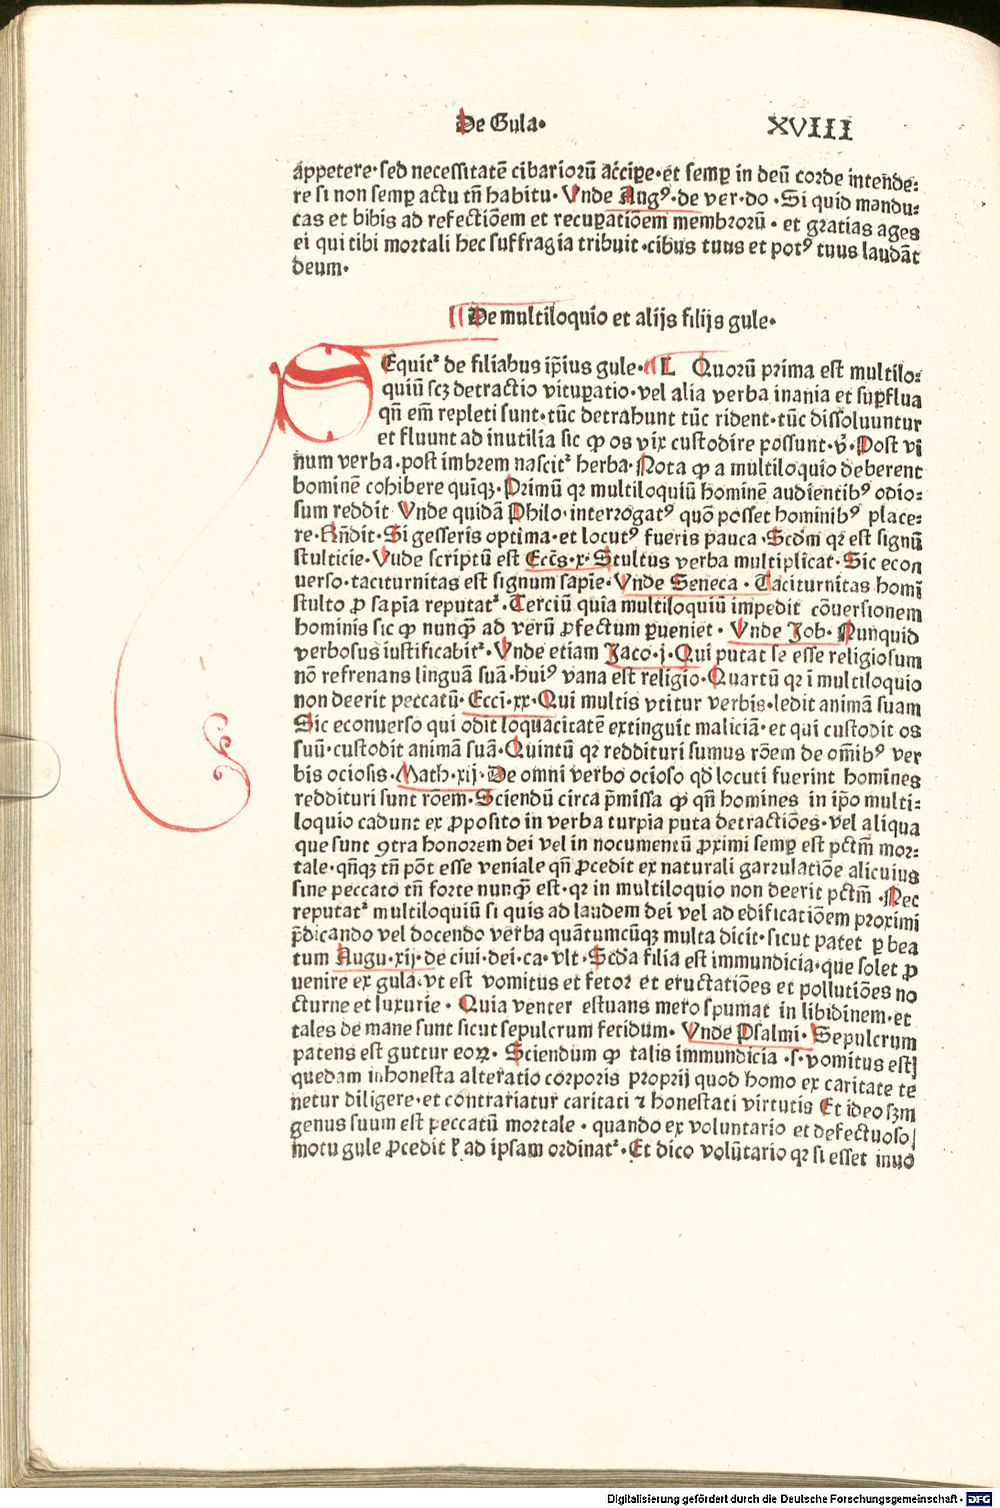 De Gula·
XVIII
appetere·sed necessitatē cibariorū accipe·et semꝑ in deū corde intende⸗
re si non semꝑ actu tn̄ habitu· Vnde Augꝰ·de ver·do·Si quid mandu⸗
cas et bibis ad refectiōem et recuꝑatiōem membrorū·et gratias ages
ei qui tibi mortali hec suffragia tribuit·cibus tuus et potꝰ tuus laudāt
deum·
De multiloquio et alijs filijs gule·
SEquit᷑ de filiabus ip̄ius gule· L Quorū prima est multilo⸗
quiū scꝫ detractio vituꝑatio·vel alia verba inania et suꝑflua
qn̄ em̄ repleti sunt·tūc detrahunt tūc rident·tūc dissoluuntur
et fluunt ad inutilia sic ꝙ os vix custodire possunt·v̄·Post vi
num verba·post imbrem nascit᷑ herba·Nota ꝙ a multiloquio deberent
hominē cohibere quīqꝫ·Primū qꝛ multiloquiū hominē audientibꝰ odio⸗
sum reddit Vnde quidā Philo·interrogatꝰ quō posset hominibꝰ place⸗
re·Rn̄dit·Si gesseris optima·et locutꝰ fueris pauca·Scd̄m qꝛ est signū
stulticie·Vnde scriptū est Ecc̄s·x·Stultus verba multiplicat·Sic econ
uerso·taciturnitas est signum sapīe·Vnde Seneca·Taciturnitas homī
stulto ꝓ sapīa reputat᷑·Terciū quia multiloquiū impedit cōuersionem
hominis sic ꝙ nunqꝫ̄ ad verū ꝓfectum ꝑueniet·Vnde Job·Nunquid
verbosus iustificabit᷑·Vnde etiam Jaco·j·Qui putat se esse religiosum
nō refrenans linguā suā·huiꝰ vana est religio·Quartū qꝛ ī multiloquio
non deerit peccatū·Ecci·xx·Qui multis vtitur verbis·ledit animā suam
Sic econuerso qui odit loquacitatē extinguit maliciā·et qui custodit os
suū·custodit animā suā·Quintū qꝛ reddituri sumus rōem de om̄ibꝰ ver
bis ociosis·Math·xij·De omni verbo ocioso qd̄ locuti fuerint homines
reddituri sunt rōem·Sciendū circa p̄missa ꝙ qn̄ homines in ip̄o multi⸗
loquio cadunt ex ꝓposito in verba turpia puta detractiōes·vel aliqua
que sunt ꝯtra honorem dei vel in nocumentū ꝓximi semꝑ est pctm̄ mor⸗
tale·qn̄qꝫ tn̄ pōt esse veniale qn̄ ꝓcedit ex naturali garrulatiōe alicuius
sine peccato tn̄ forte nunqꝫ̄ est·qꝛ in multiloquio non deerit pctm̄·Nec
reputat᷑ multiloquiū si quis ad laudem dei vel ad edificatiōem proximi
p̄dicando vel docendo verba quātumcūqꝫ multa dicit·sicut patet ꝑ bea
tum Augu·xij·de ciui·dei·ca·vlt·Scd̄a filia est immundicia·que solet ꝓ
uenire ex gula·vt est vomitus et fetor et eructatiōes et pollutiōes no
cturne et luxurie·Quia venter estuans mero spumat in libidinem·et
tales de mane sunt sicut sepulcrum fetidum·Vnde Psalmi·Sepulcrum
patens est guttur eoꝝ·Sciendum ꝙ talis immundicia·s·vomitus est
quedam inhonesta alteratio corporis proprij quod homo ex caritate te
netur diligere·et contrariatur caritati ⁊ honestati virtutis Et ideo sꝫm
genus suum est peccatū mortale·quando ex voluntario et defectuoso
motu gule ꝓcedit ł ad ipsam ordinat᷑·Et dico volūtario qꝛ si esset inuo
Digitalisierung gefördert durch die Deutsche Forschungsgemeinschaft - DFG